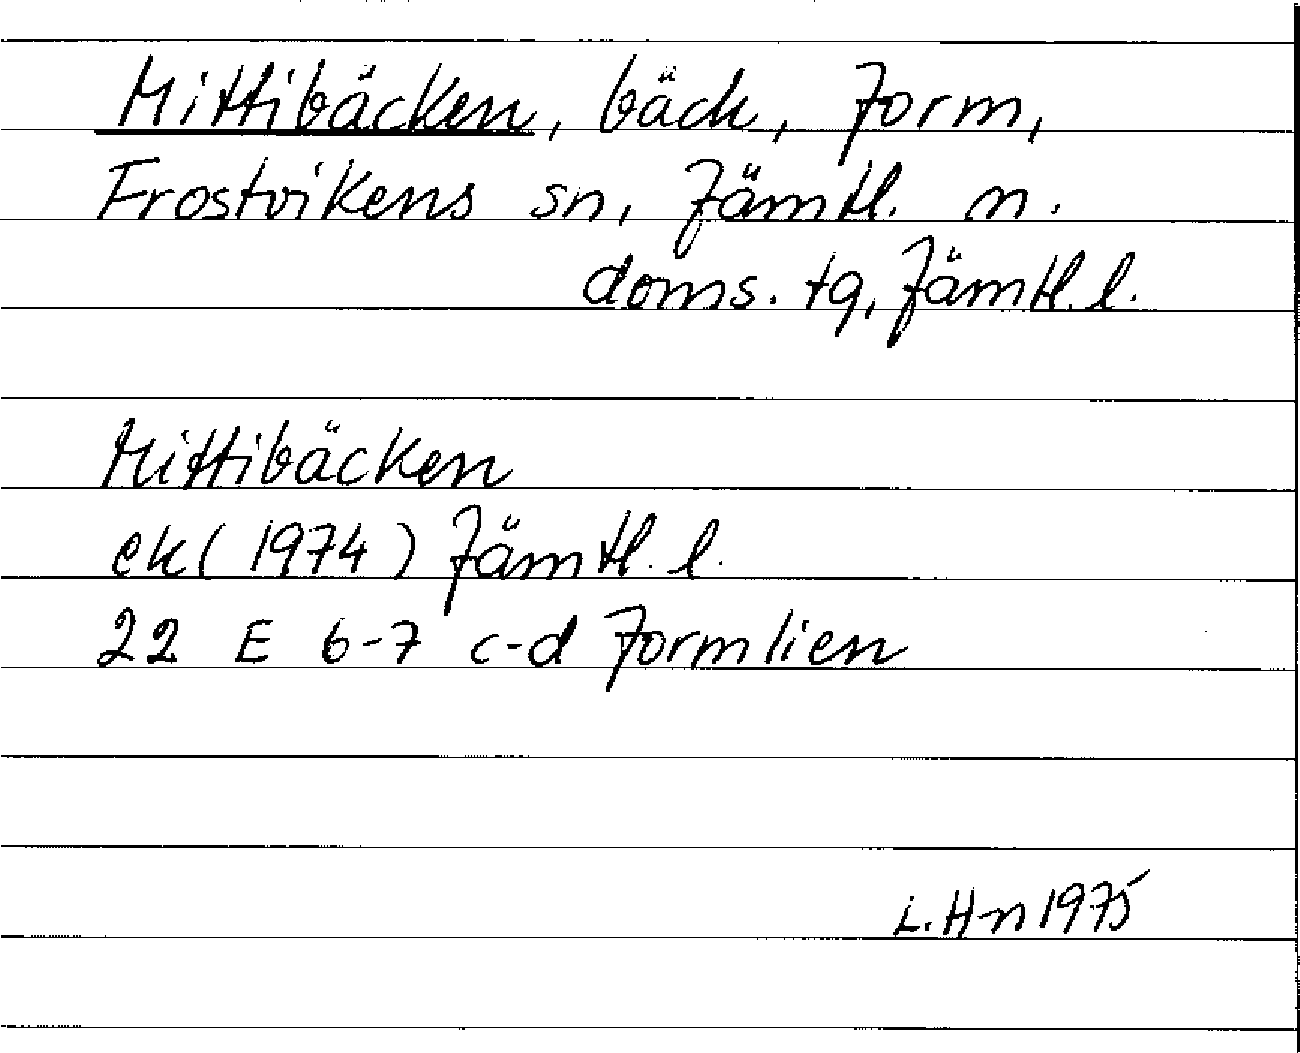 Mittibäcken, bäck, Jorm,
Frostvikens sn, Jämtl. n.
doms. tg, Jämtl. l.
Mittibäcken
ek (1974) Jämtl. l.
22 E 6-7 c-d Jormlien
L. H-n 1975